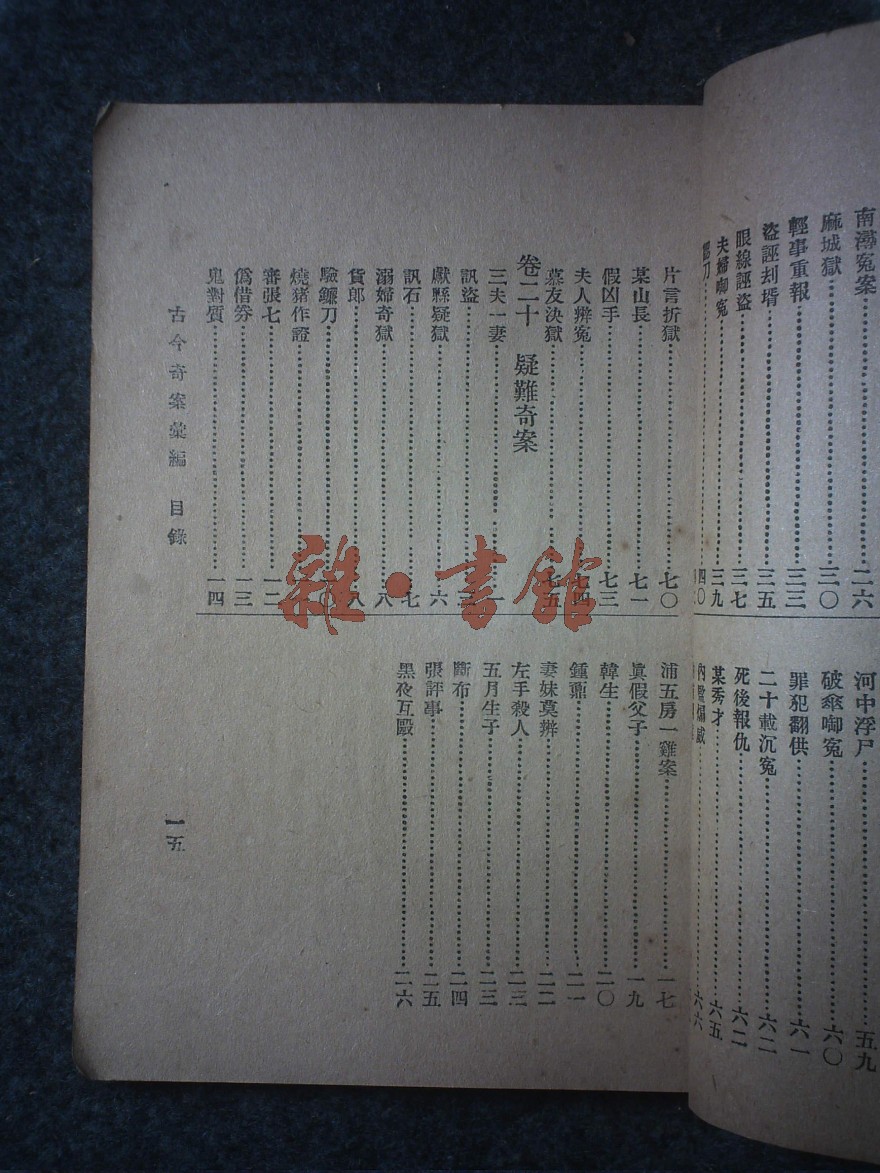 南潯冤案……二六
麻城獄……三〇
輕事重報……三三
盜誣刦壻……三五
眼線誣盜……三七
夫婦啣冤……三九
河中浮尸……五九
破傘啣冤……六〇
罪犯翻供……六一
二十載沉冤……六二
死後報仇……六二
某秀才……六五
六六
片言折獄……七〇
某山長……七一
假凶手……七三
夫人辨冤……七四
慕友決獄……七五
卷二十 疑難奇案
三夫一妻……一
訊盜
獻縣疑獄……六
訊石……七
溺婦奇獄……八
貨郎……八
驗鐮刀
燒豬作證
審張七……一二
僞借券……一三
鬼對質……一四
浦五房一雞案……一七
眞假父子……一九
韓生……二〇
鍾鼐……二一
妻妹莫辨……二二
左手殺人……二三
五月生子……二三
斷布……二四
張評事……二五
黑夜互毆……二六
古今奇案彙編 目錄
一五
雜·書館